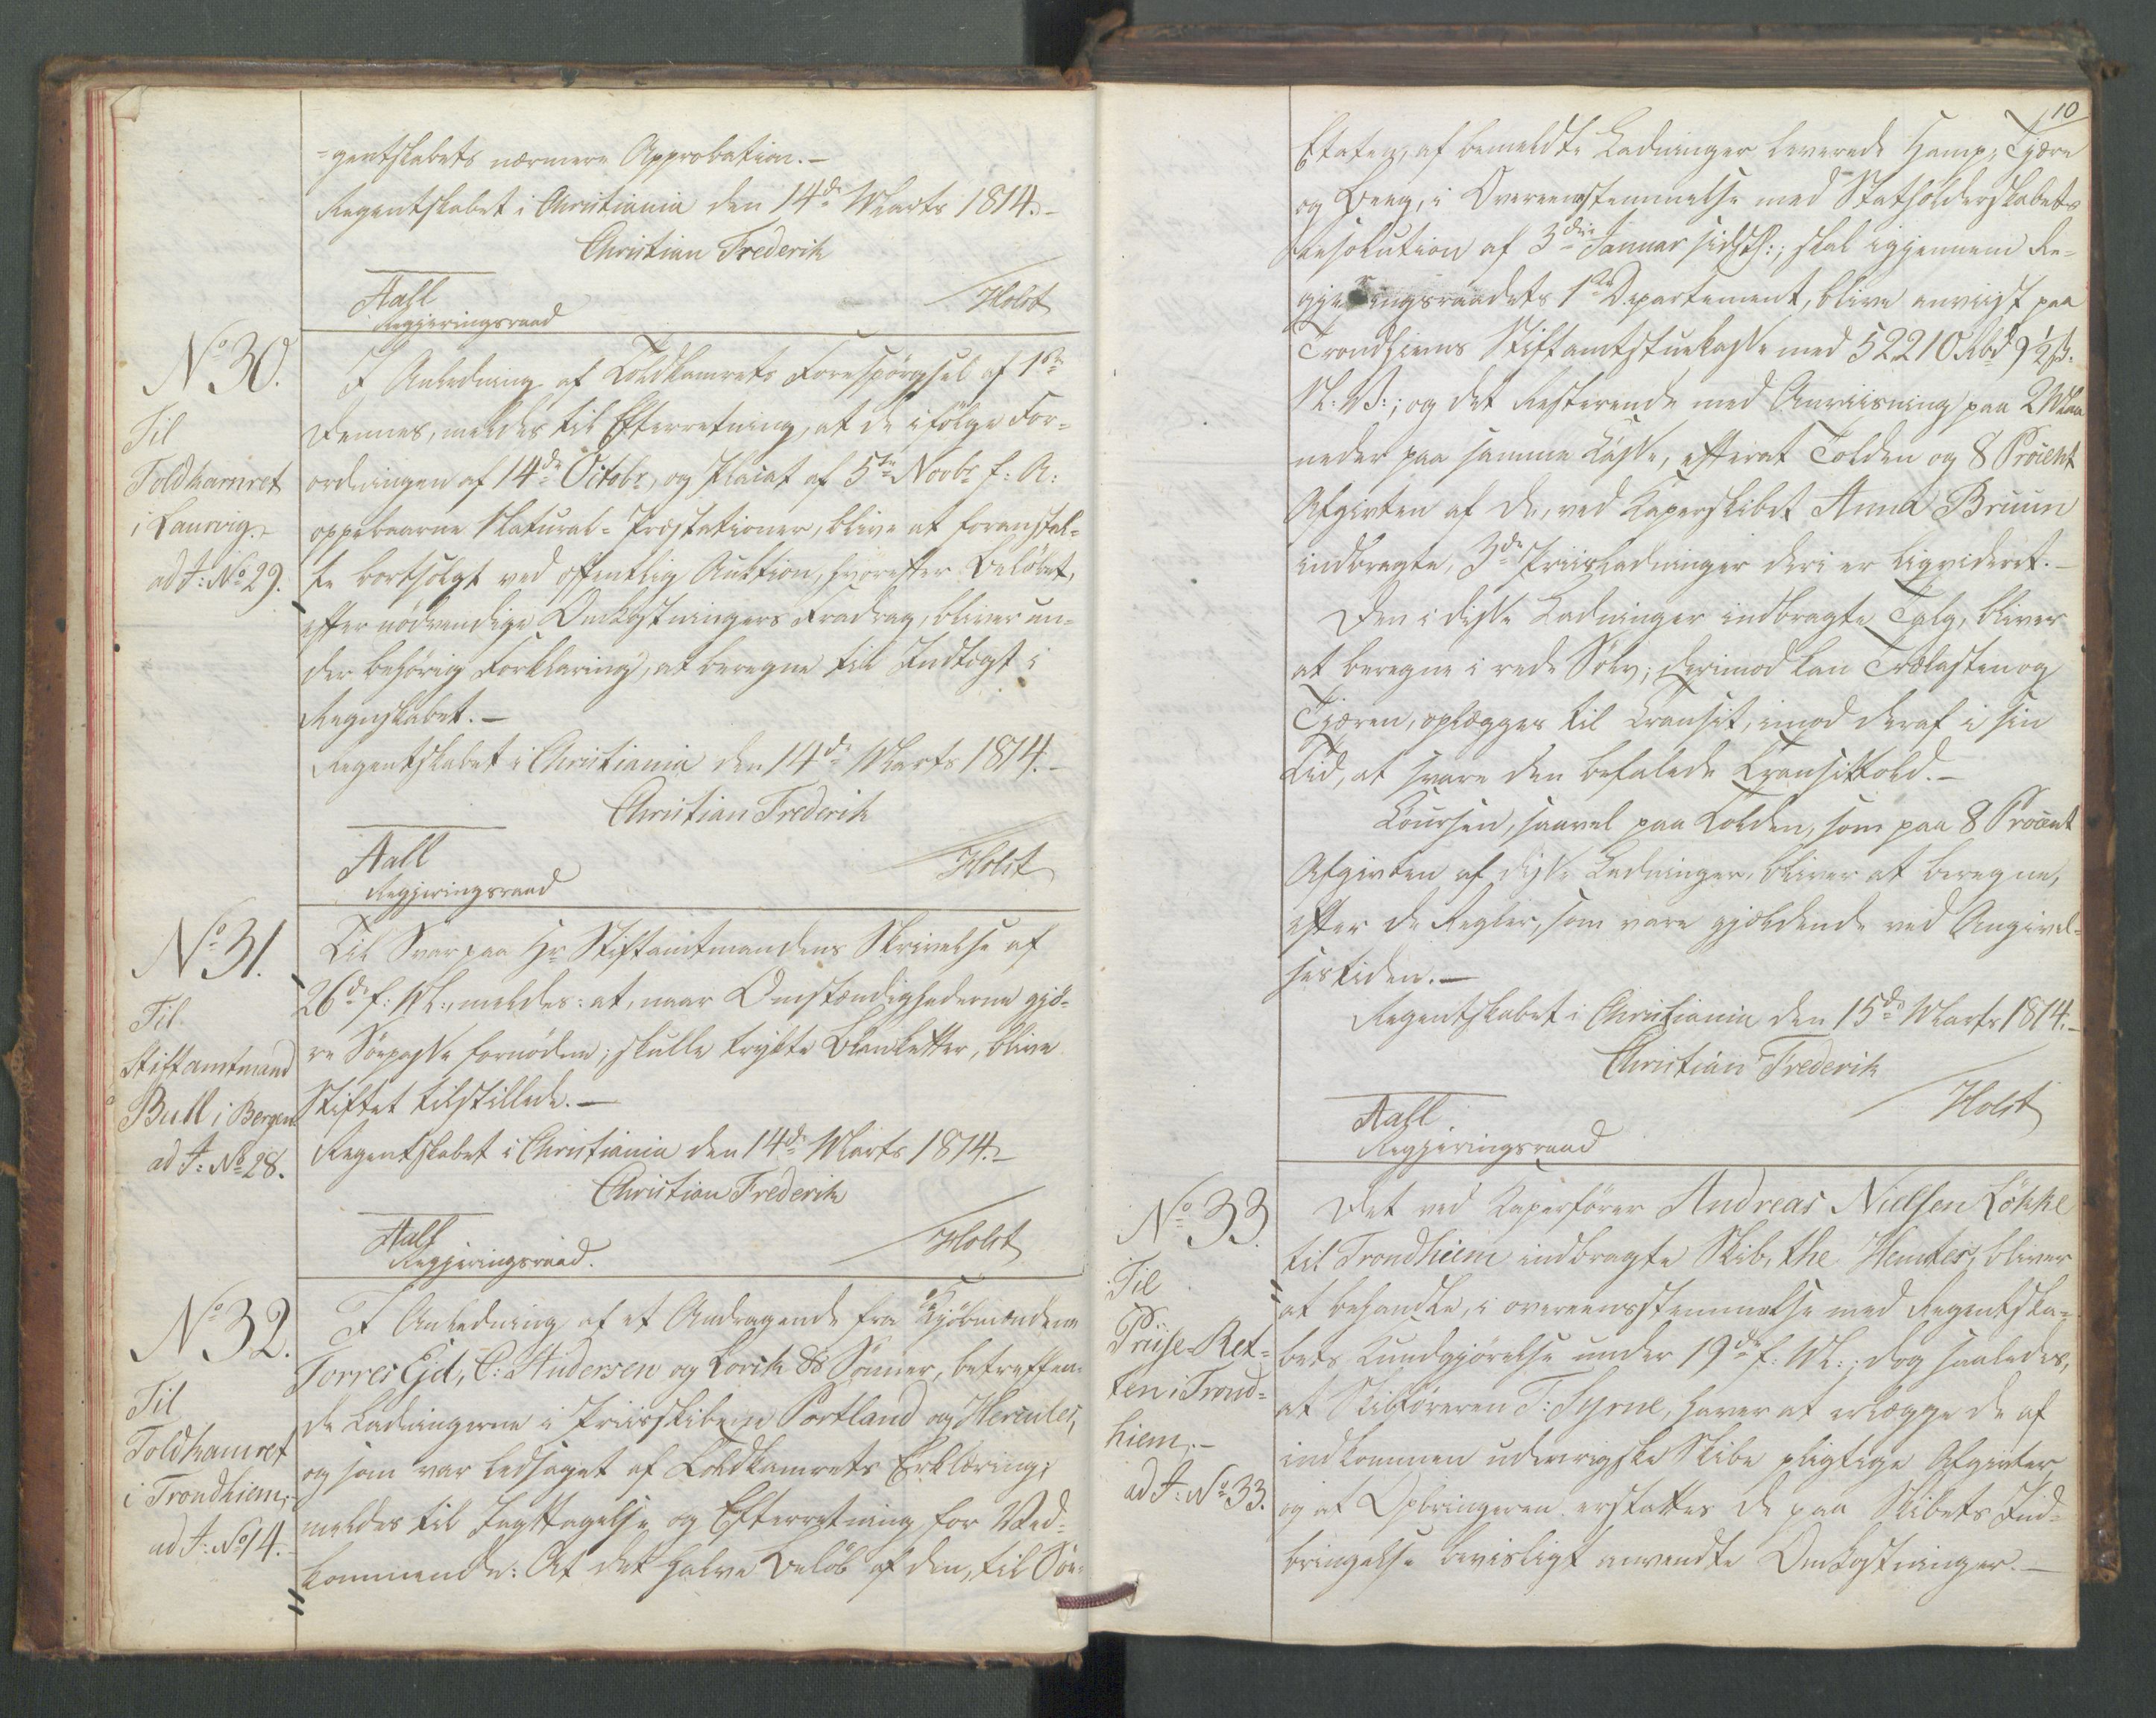 =gentskabets nærmere Approbation.-
Regentskabet i Christiania den 14de Marts 1814.-
Christian Frederik
Aall
Regjeringsraad
Holst
No 30.
Til
Toldkamret
i Laurvig.-
ad J: No 29.
I Anledning af Toldkamrets Forespörgsel af 1ste
dennes, meldes til Efterretning, at de ifölge For=
ordningen af 14de Octobr, og Placat af 5te Novbr f: A:
oppebaarne Natural-Præstationer, blive at foranstal=
te bortsolgt ved offentlig Auktion, hvorefter Belöbet,
efter nödvendige Omkostningers Fradrag, bliver un=
der behörig Forklaring, at beregne til Indtægt i
Regnskabet.-
Regentskabet i Christiania den 14de Marts 1814.-
Christian Frederik
Aall
Regjeringsraad
Holst
No 31.
Til
Stiftamtmand
Bull i Bergen
ad J: No 28.
Til Svar paa Hr Stiftamtmandens Skrivelse af
26de f: M:, meldes: at, naar Omstændighederne gjö=
re Söepasse fornödne; skulle trykte Blanketter, blive
Stiftet tilstillede.-
Regentskabet i Christiania den 14de Marts 1814.-
Christian Frederik
Aall
Regjeringsraad.
Holst
No 32.
Til
Toldkamret
i Trondhiem,-
ad J: No 14.
I Anledning af et Andragende fra Kjöbmændene
Torres Eid, C: Andersen og Lorck & Sönner, betreffen=
de Ladningerne i Priisskibene Portland og Hercules,
og som var ledsaget af Toldkamrets Erklæring;
meldes til Iagttagelse og Efterretning for Ved=
kommende: At det halve Belöb af den, til Söe=
10
Etaten, af bemeldte Ladninger leverede Hamp, Tjære
og Beeg, i Overeensstemmelse med Statholderskabets
Resolution af 3die Januar sidstl:, skal igjennem Re=
gjeringsraadets 1ste Departement, blive anviist paa
Trondhiems Stiftamtstuekasse med 52210 Rbd 9½ ß.
N: V:; og det Resterende med Anviisning paa 2 Maa
neder paa samme Kasse, efterat Tolden og 8 Procent
Afgivten af de, ved Kaperskibet Anna Bruun
indbragte, 3de Priisladninger deri er liqvideret.-
Den i disse Ladninger indbragte Talg, bliver
at beregne i rede Sölv; derimod kan Trælasten og
Tjæren, oplægges til Transit, imod deraf i sin
Tid, at svare den befalede Transittold.-
Coursen, saavel paa Tolden, som paa 8 Procent
Afgivten af disse Ladninger, bliver at beregne,
efter de Regler, som vare gjældende ved Angivel=
sestiden.-
Regentskabet i Christiania den 15de Marts 1814.-
Christian Frederik
Aall
Regjeringsraad
Holst
No 33.
Til
Priise-Ret=
ten i Trond=
hiem.-
ad J: No 33.
Det ved Kaperförer Andreas Nielsen Lökke
til Trondhiem indbragte Skib, the , bliver
at behandle, i overeensstemmelse med Regentska=
bets Kundgjörelse under 19de f: M:; dog saaledes,
at Skibföreren T: Syrne, haver at erlægge de af
indkommen udenrigske Skibe pligtige Afgivter,
og at Opbringeren erstattes de paa Skibets Ind=
bringelse beviisligt anvendte Omkostninger.-